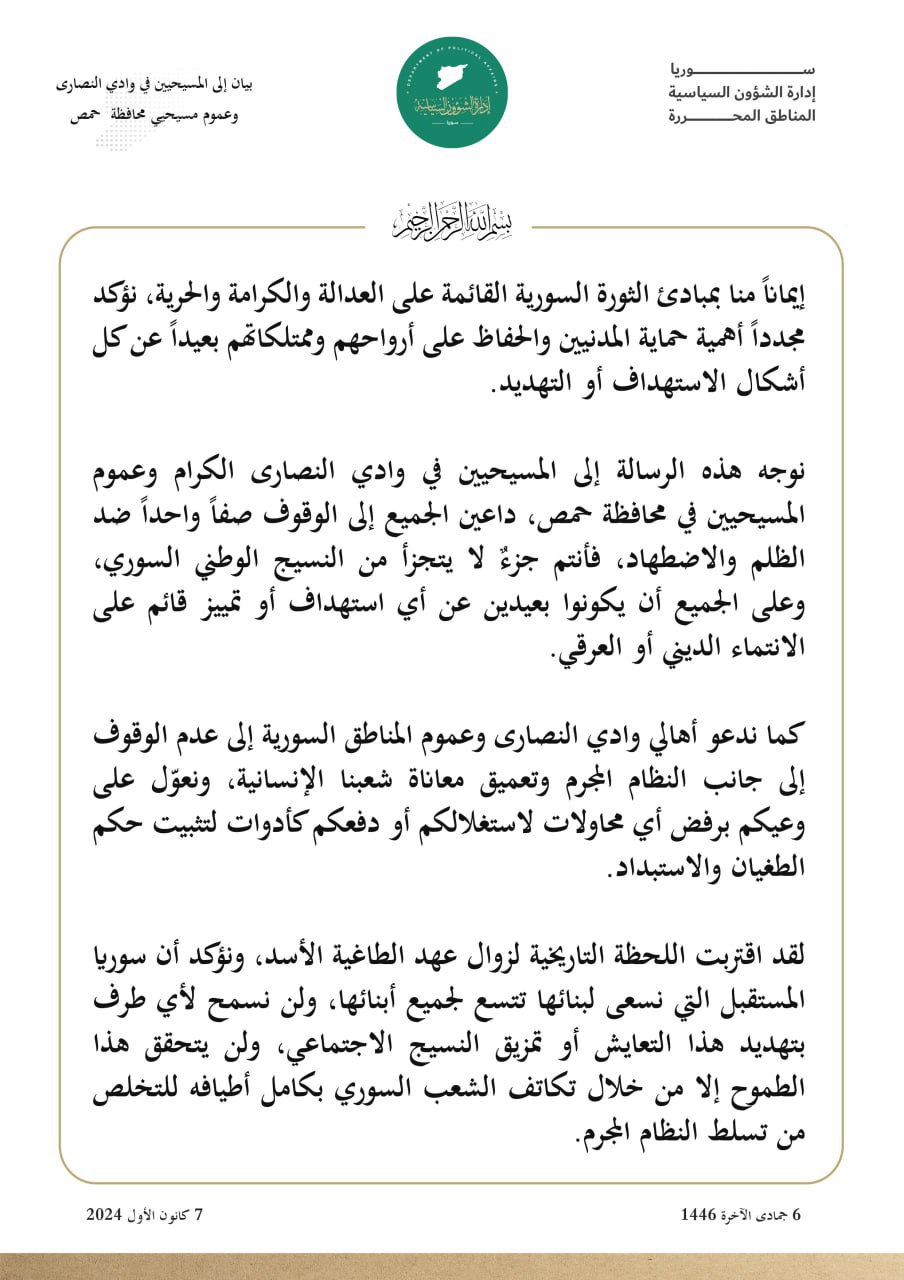 ســـوريا
إدارة الشؤون السياسية
المناطق المحـــررة
DEPARTMENT OF POLITICAL AFFAIRS
إدارة الشؤون السياسية
سوريا
بيان إلى المسيحيين في وادي النصارى
وعموم مسيحيي محافظة حمص
بسم الله الرحمن الرحيم
إيماناً منا بمبادئ الثورة السورية القائمة على العدالة والكرامة والحرية، نؤكد
مجدداً أهمية حماية المدنيين والحفاظ على أرواحهم وممتلكاتهم بعيداً عن كل
أشكال الاستهداف أو التهديد.
نوجه هذه الرسالة إلى المسيحيين في وادي النصارى الكرام وعموم
المسيحيين في محافظة حمص، داعين الجميع إلى الوقوف صفاً واحداً ضد
الظلم والاضطهاد، فأنتم جزءٌ لا يتجزأ من النسيج الوطني السوري،
وعلى الجميع أن يكونوا بعيدين عن أي استهداف أو تمييز قائم على
الانتماء الديني أو العرقي.
كما ندعو أهالي وادي النصارى وعموم المناطق السورية إلى عدم الوقوف
إلى جانب النظام المجرم وتعميق معاناة شعبنا الإنسانية، ونعوّل على
وعيكم برفض أي محاولات لاستغلالكم أو دفعكم كأدوات لتثبيت حكم
الطغيان والاستبداد.
لقد اقتربت اللحظة التاريخية لزوال عهد الطاغية الأسد، ونؤكد أن سوريا
المستقبل التي نسعى لبنائها تتسع لجميع أبنائها، ولن نسمح لأي طرف
بتهديد هذا التعايش أو تمزيق النسيج الاجتماعي، ولن يتحقق هذا
الطموح إلا من خلال تكاتف الشعب السوري بكامل أطيافه للتخلص
من تسلط النظام المجرم.
6 جمادى الآخرة 1446
7 كانون الأول 2024